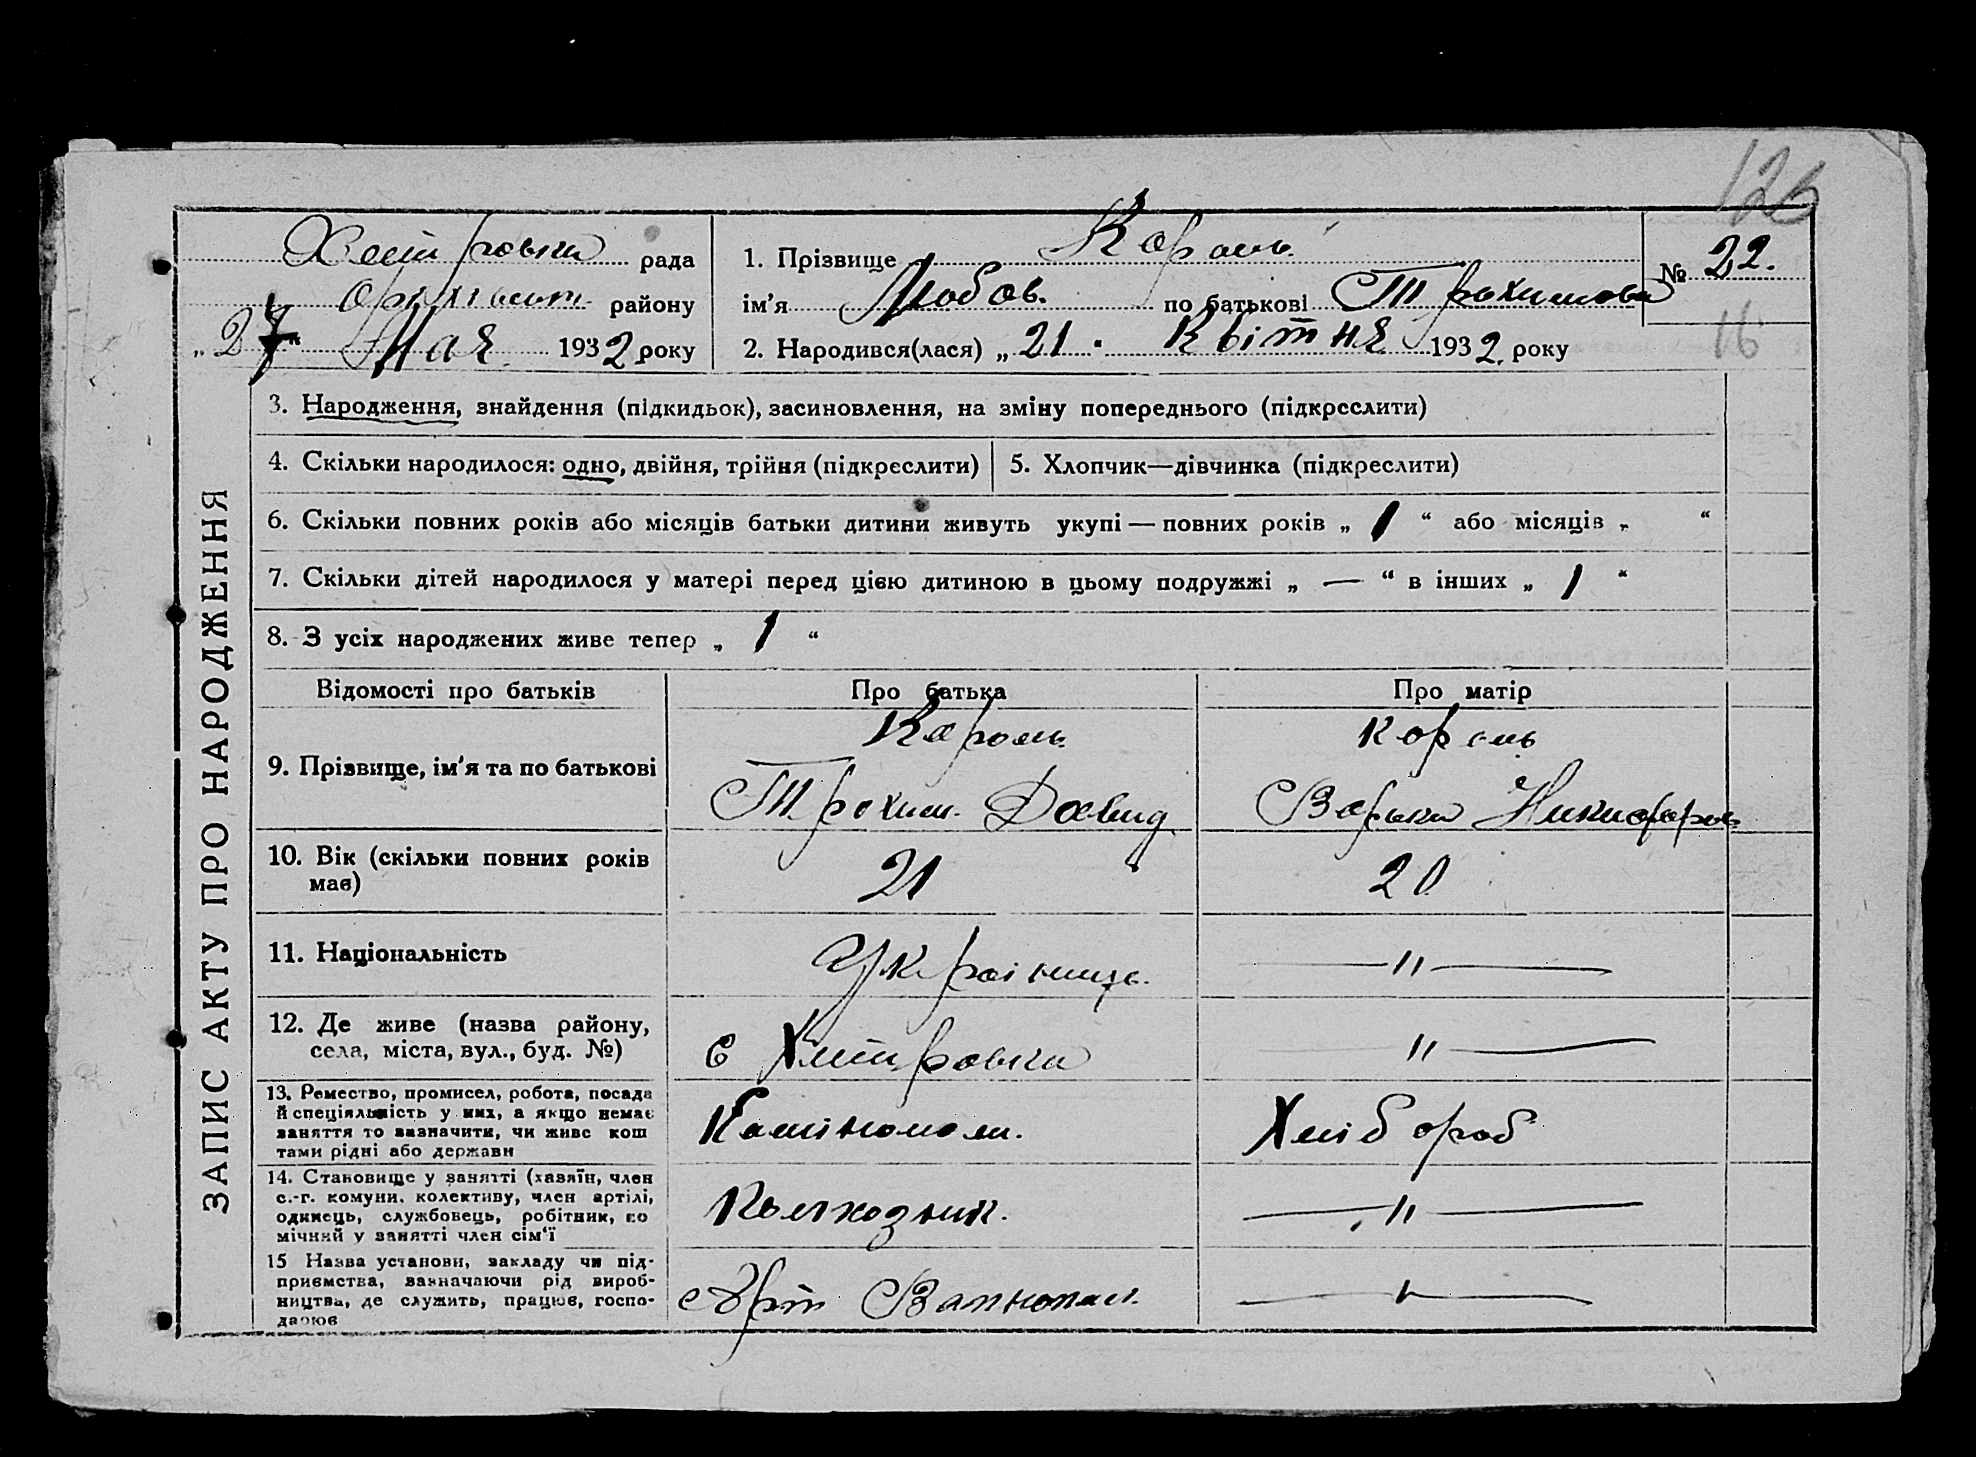 126
рада
району
„27“ Мая 1932 року
1. Прізвище Король
ім'я Любов. по батькові Трохимова
2. Народився(лася) „21. Квітня 1932 року
№ 22.
16
ЗАПИС АКТУ ПРО НАРОДЖЕННЯ
3. Народження, знайдення (підкидьок), засиновлення, на зміну попереднього (підкреслити)
4. Скільки народилося: одно, двійня, трійня (підкреслити)
5. Хлопчик—дівчинка (підкреслити)
6. Скільки повних років або місяців батьки дитини живуть укупі — повних років „ 1 “ або місяців „ “
7. Скільки дітей народилося у матері перед цією дитиною в цьому подружжі „ — “ в інших „ 1 “
8. З усіх народжених живе тепер „ 1 “
Відомості про батьків
Про батька
Про матір
9. Прізвище, ім'я та по батькові
Король
Трохим. Давид.
Король
Варька Никифоров
10. Вік (скільки повних років
має)
21
20
11. Національність
Українець.
—„—
12. Де живе (назва району,
села, міста, вул., буд. №)
с
—„—
13. Ремество, промисел, робота, посада
й спеціяльність у них, а якщо немає
заняття то визначити, чи живе кош
тами рідні або держави
Каміномом.
Хлібороб
14. Становище у занятті (хазяїн, член
с.-г. комуни, колективу, член артілі,
одинець, службовець, робітник, по
мічний у занятті член сім'ї
Колгозник.
—„—
15 Назва установи, закладу чи під-
приємства, зазначаючи рід вироб-
ництва, де служить, працює, госпо-
дарює
Арт
—„—